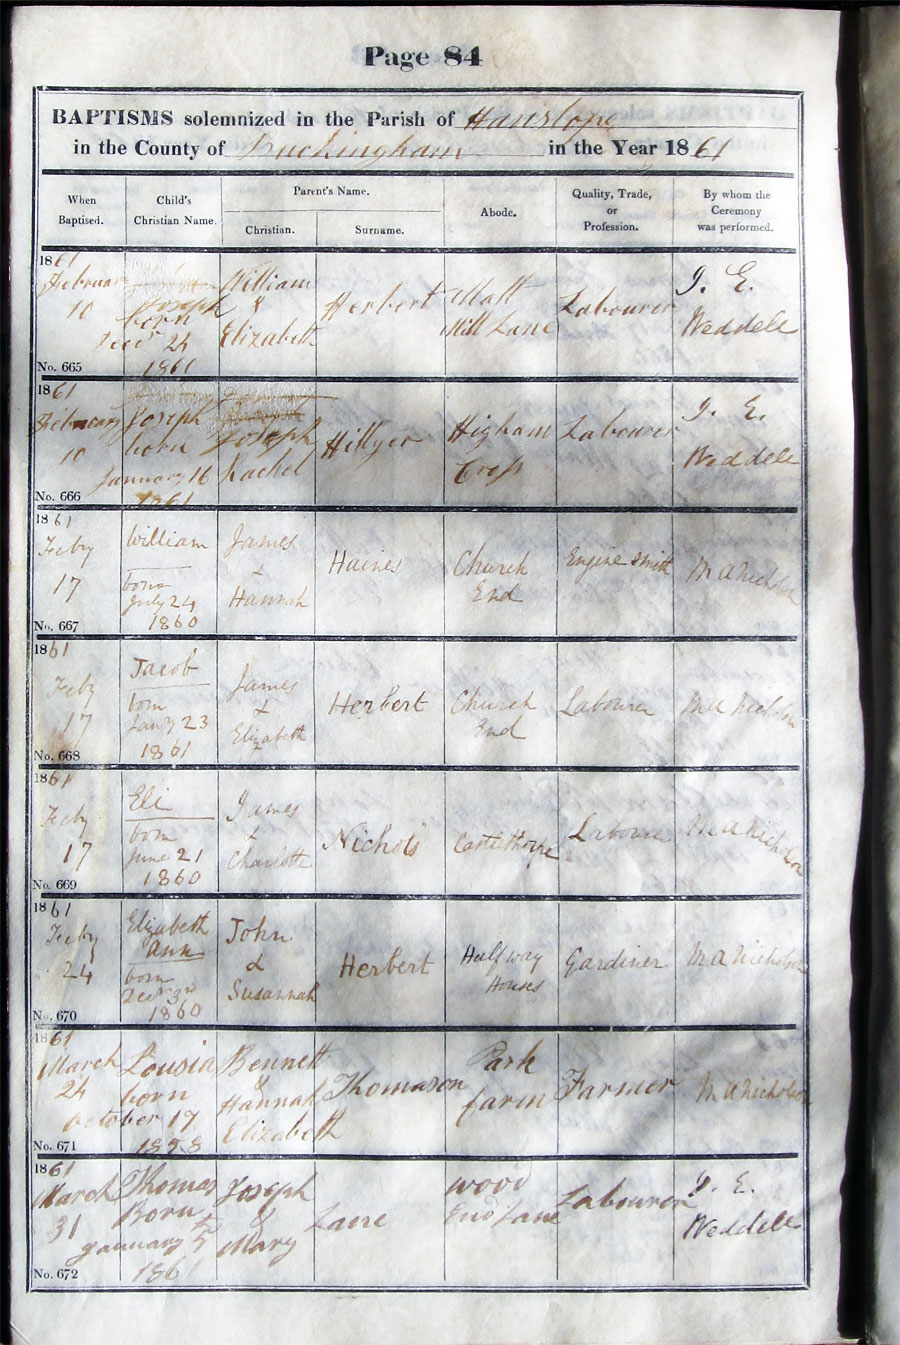 Page 84
BAPTISMS solemnized in the Parish of Hanslope
in the County of Buckingham in the Year 1861
When Baptised.
Child's Christian Name.
Parent's Name.
Christian.
Surname.
Abode.
Quality, Trade, or Profession.
By whom the Ceremony was performed.
1861
February
10
No. 665
Joseph
born
Decr 24
1861
William
&
Elizabeth
Herbert
Malt
Mill Lane
Labourer
J. E.
Weddell
1861
February
10
No. 666
Joseph
born
January 16
1861
Joseph
Rachel
Hillyer
Higham
Cross
Labourer
J. E.
Weddell
1861
Feby
17
No. 667
William
born
July 24
1860
James
&
Hannah
Haines
Church
End
Engine smith
M A Nicholson
1861
Feby
17
No. 668
Jacob
born
Jany 23
1861
James
&
Elizabeth
Herbert
Church
End
Labourer
M A Nicholson
1861
Feby
17
No. 669
Eli
born
June 21
1860
James
&
Charlotte
Nichols
Castlethorpe
Labourer
M A Nicholson
1861
Feby
24
No. 670
Elizabeth
Ann
born
Decr 3rd
1860
John
&
Susannah
Herbert
Half way
Houses
Gardiner
M A Nicholson
1861
March
24
No. 671
Lousia
born
October 17
1858
Bennett
&
Hannah
Elizabeth
Thomason
Park
farm
Farmer
M A Nicholson
1861
March
31
No. 672
Thomas
Born
January 5
1861
Joseph
&
Mary
Lane
wood
End Lane
Labourer
J. E.
Weddell